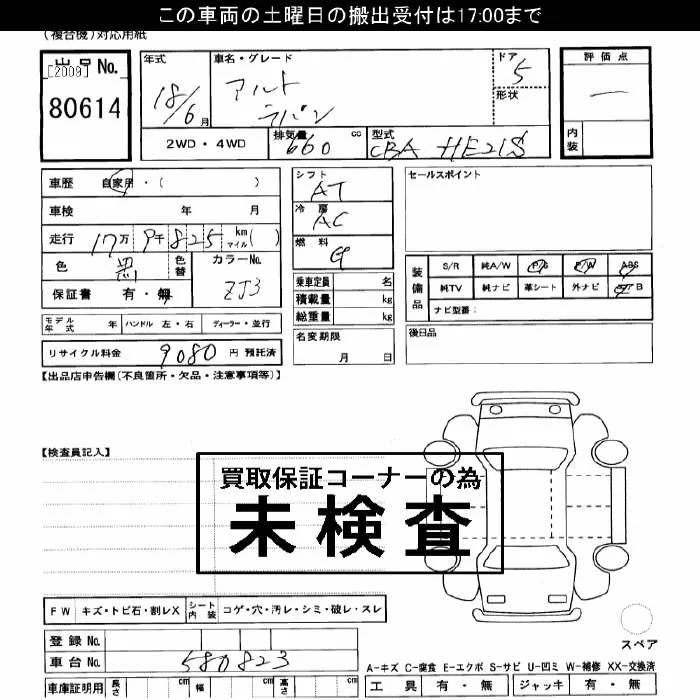 この車両の土曜日の搬出受付は17:00まで
(複合機)対応用紙
出品 No.
[2009]
80614
年式 18/6月
車名・グレード アルト ラパン
ドア 5
形状
評価点 —
内装
2WD・4WD
排気量 660 cc
型式 CBA HE21S
車歴 自家用・( )
車検 年 月
走行 17万9千825 km マイル( )
色 黒 色替
カラーNo. ZJ3
保証書 有・無
シフト AT
冷房 AC
燃料 G
セールスポイント
乗車定員 名
積載量 kg
総重量 kg
装備品
S/R 純A/W P/S P/W ABS
純TV 純ナビ 革シート 外ナビ エアB
ナビ型番:
モデル年式 年 ハンドル 左・右 ディーラー・並行
名変期限 月 日
後日品
リサイクル料金 9080 円 預託済
【出品店申告欄(不良箇所・欠品・注意事項等)】
【検査員記入】
買取保証コーナーの為
未検査
FW キズ・トビ石・割レX シート内装 コゲ・穴・汚レ・シミ・破レ・スレ
登録 No.
車台 No. 580823
スペア
A-キズ C-腐食 E-エクボ S-サビ U-凹ミ W-補修 XX-交換済
車庫証明用 長さ cm 幅 cm 高さ cm
工具 有・無 ジャッキ 有・無